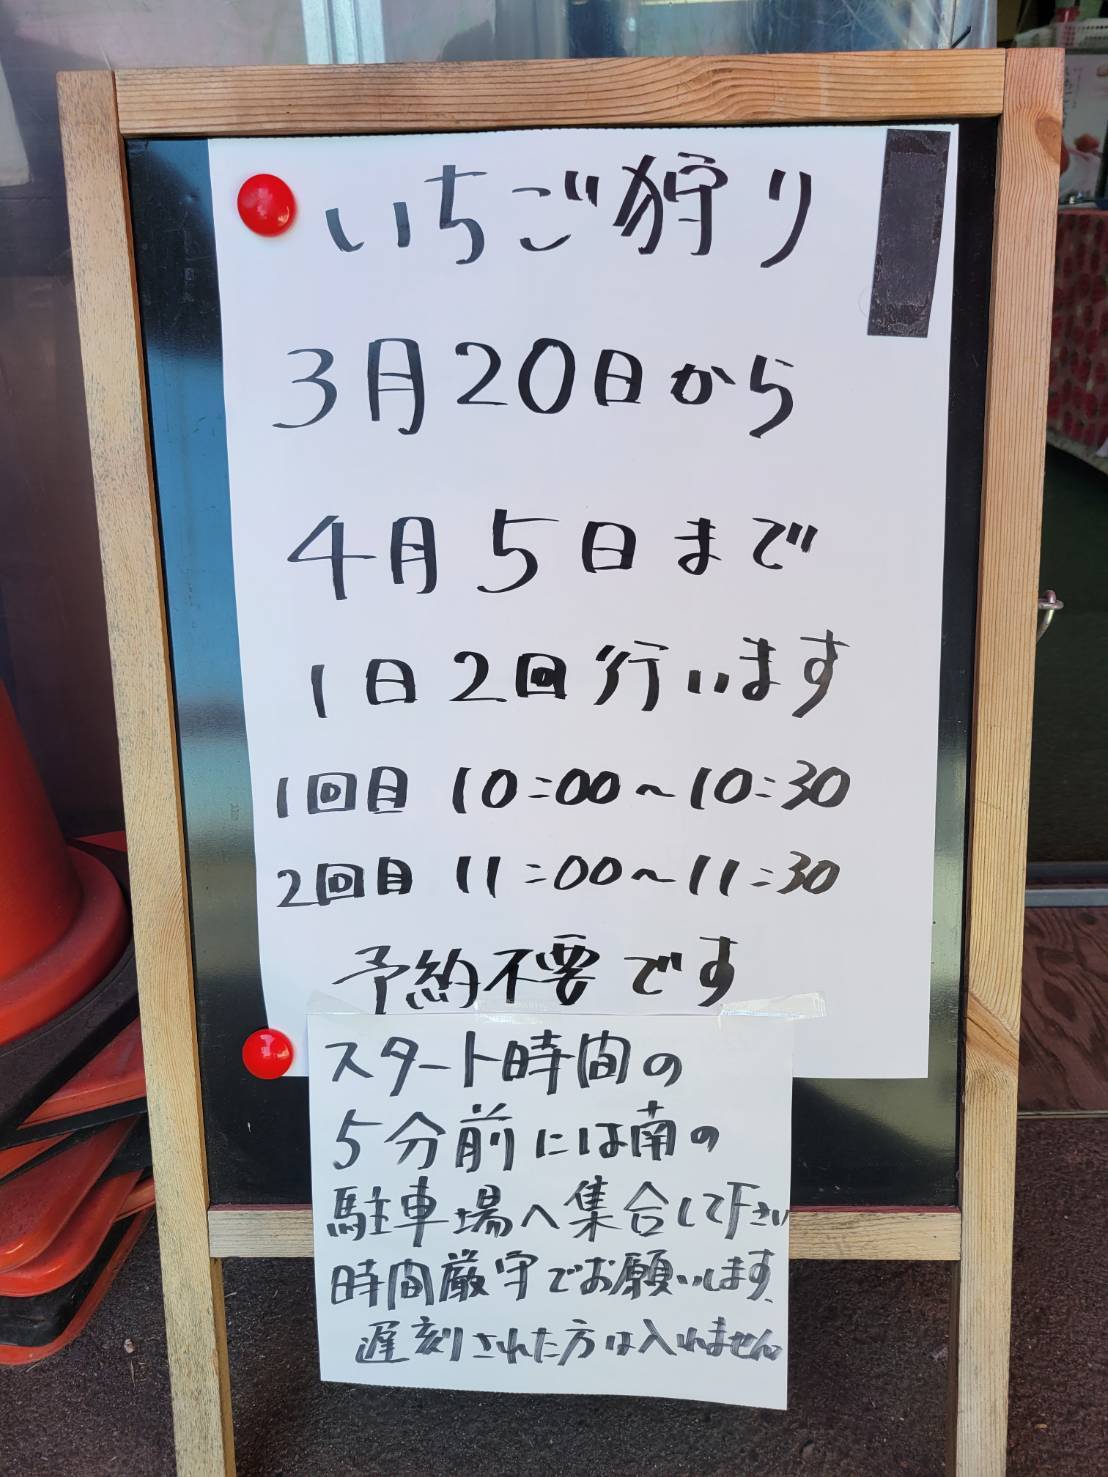 いちご狩り
3月20日から
4月5日まで
1日2回行います
1回目 10:00〜10:30
2回目 11:00〜11:30
予約不要です
スタート時間の
5分前には南の
駐車場へ集合して下さい
時間厳守でお願いします。
遅刻された方は入れません。